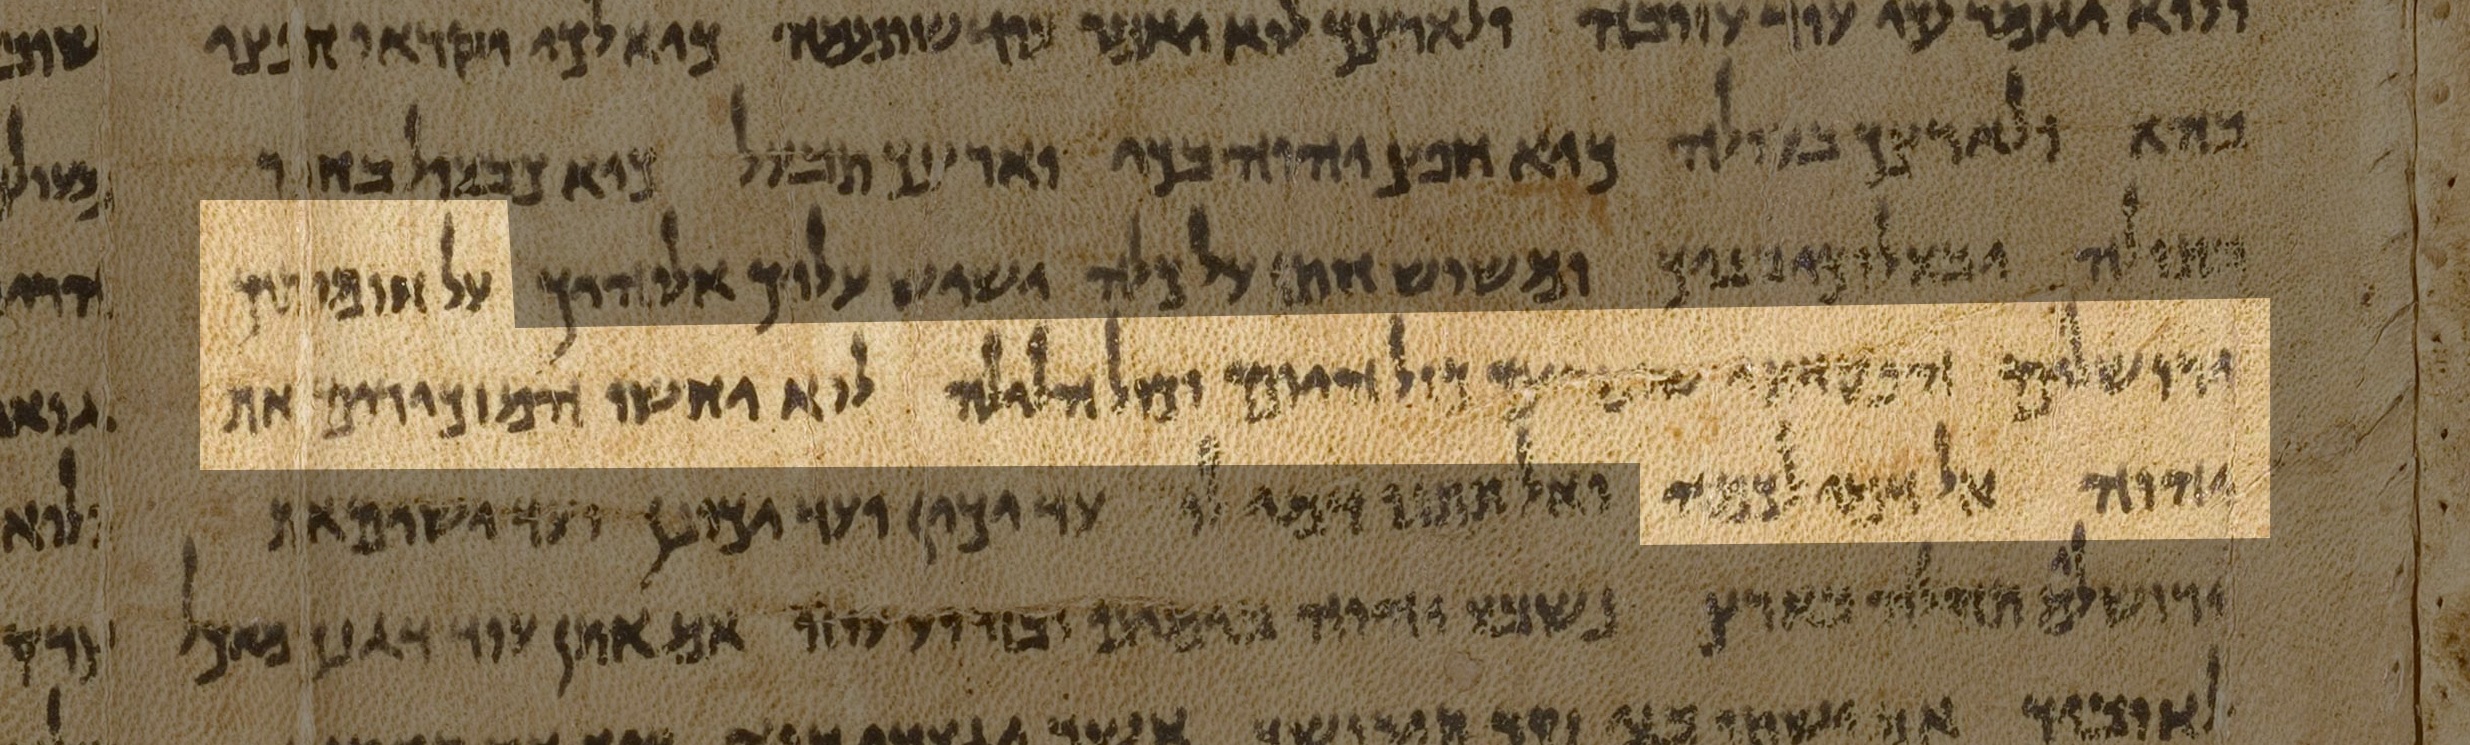 ולוא יאמר לך עוד עזובה ולארצך לוא יאמר עוד שוממה כיא לכי יקראו חפצי
בהא ולארצך בעולה כיא חפץ יהוה בכי וארצך תבעל כיא כבעול בחור
בתולה יבעלוך בניך ומשוש חתן על כלה ישיש עליך אלוהיך על חומותיך
ירושלים הפקדתי שומרים כול היום וכול הלילה לוא יחשו המזכירים את
יהוה אל דמי לכמה ואל תתנו דמי לו עד יכין ועד יכונן ועד ישים את
ירושלם תהלה בארץ נשבע יהוה בימינו ובזרוע עוזו אם אתן עוד דגנך מאכל
לאויביך אם ישתו בני נכר תירושך אשר